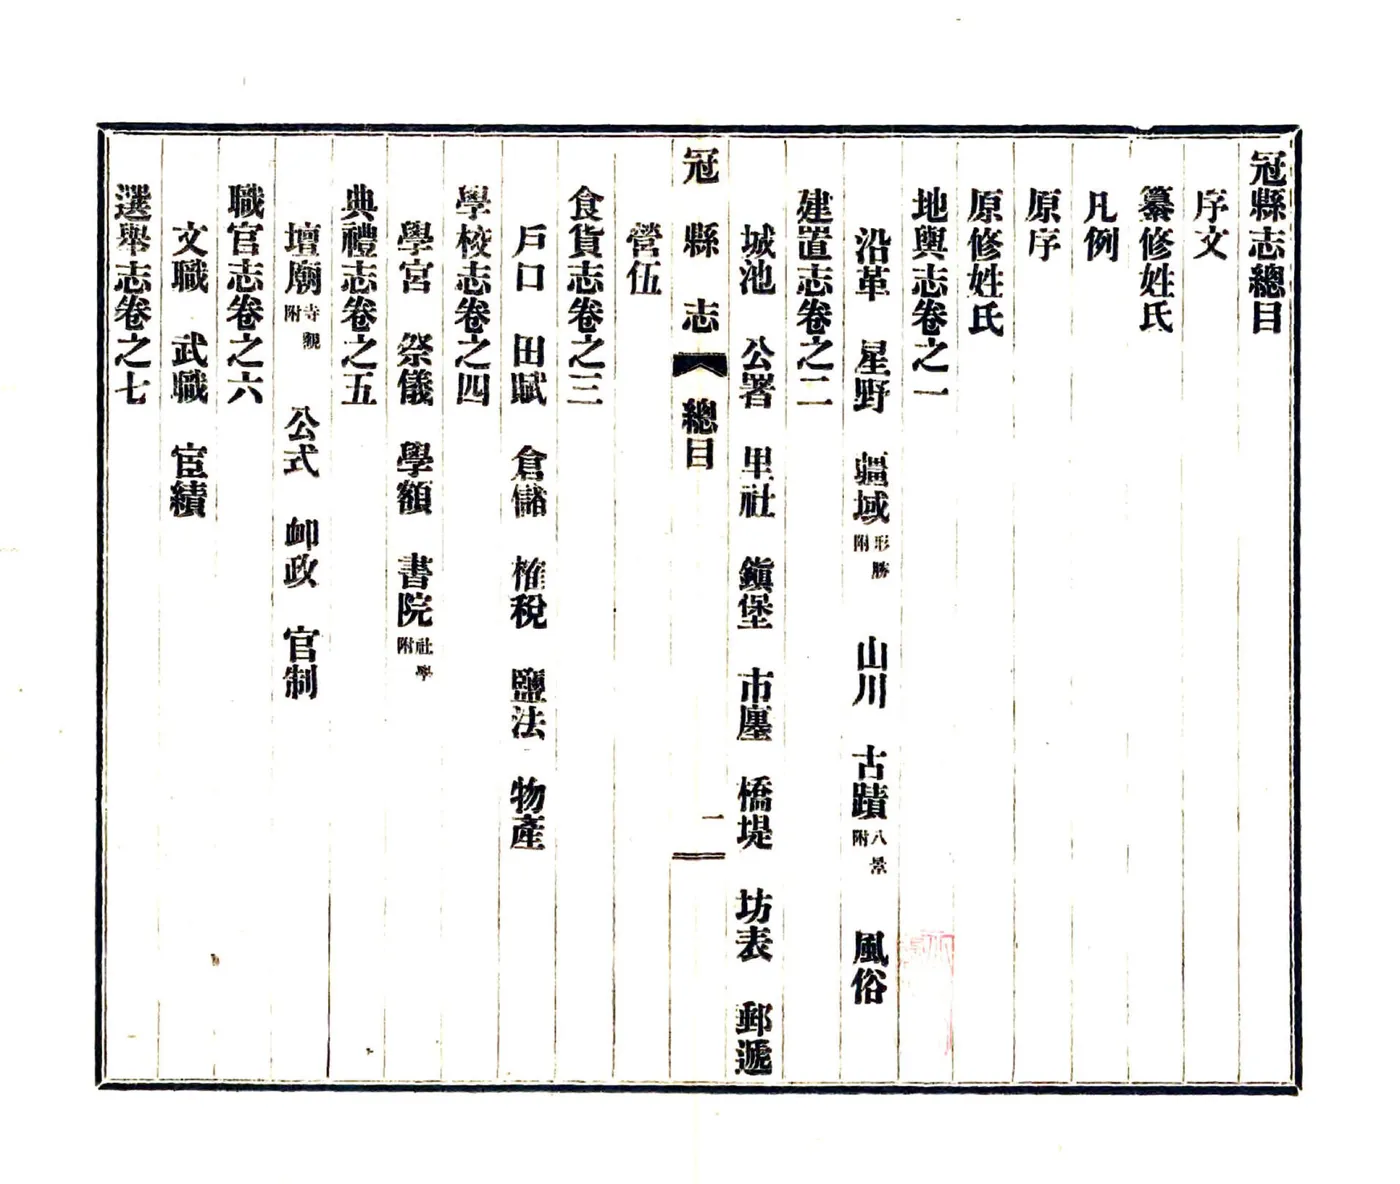 冠縣志總目
序文
纂修姓氏
凡例
原序
原修姓氏
地輿志卷之一
沿革 星野 疆域形勝附 山川 古蹟八景附 風俗
建置志卷之二
城池 公署 里社 鎭堡 市廛 橋堤 坊表 郵遞
冠縣志 總目 一
營伍
食貨志卷之三
戶口 田賦 倉儲 榷稅 鹽法 物產
學校志卷之四
學宮 祭儀 學額 書院社學附
典禮志卷之五
壇廟寺觀附 公式 卹政 官制
職官志卷之六
文職 武職 宦績
選舉志卷之七